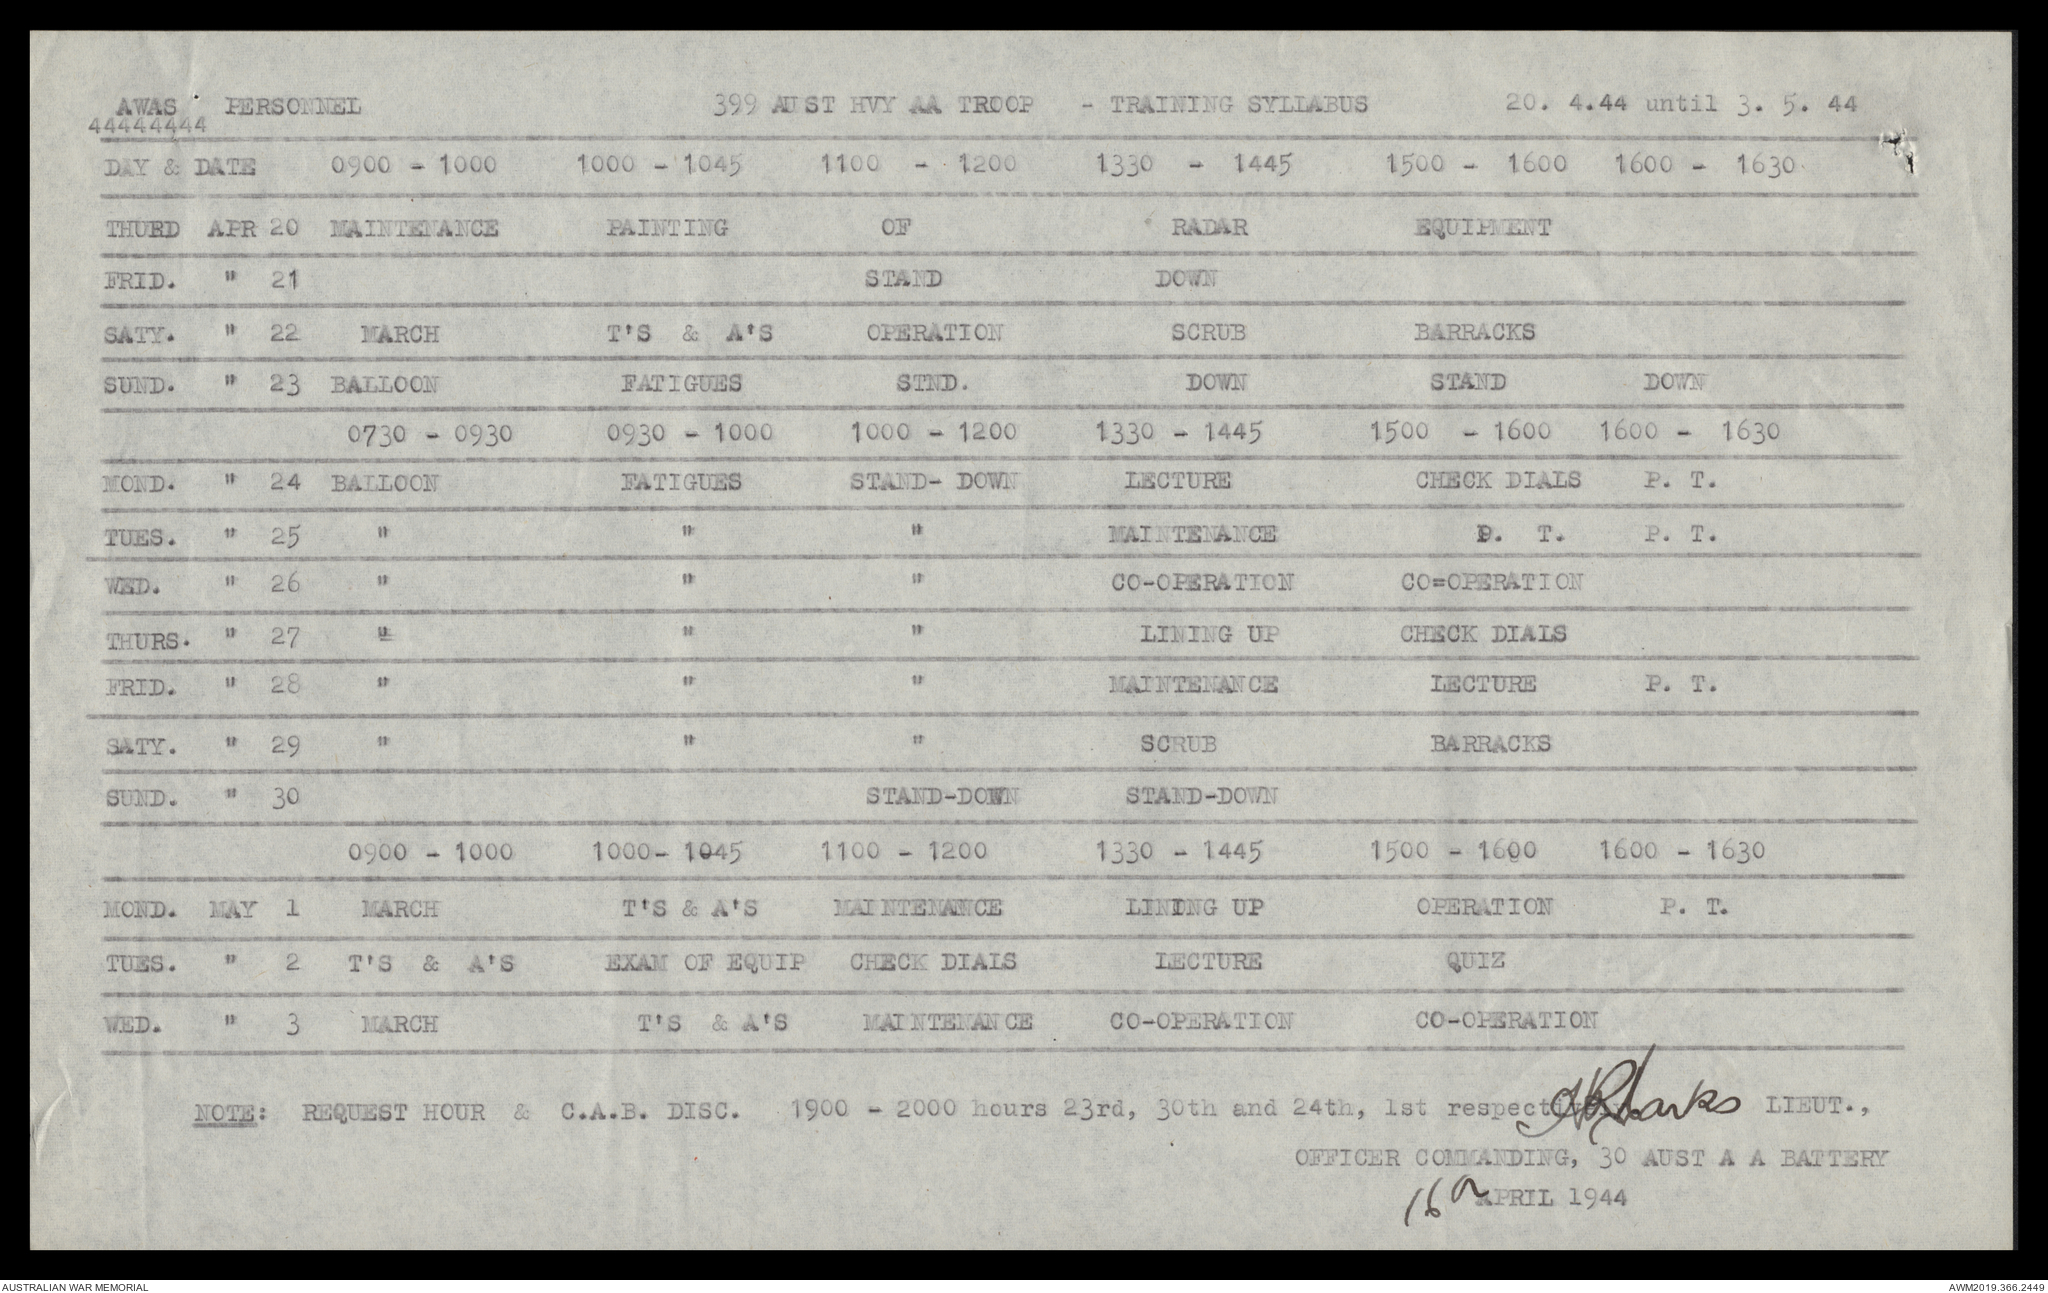 AWAS PERSONNEL 399 AUST HVY AA TROOP - TRAINING SYLLABUS 20. 4.44 until 3. 5. 44
44444444
DAY & DATE 0900 - 1000 1000 - 1045 1100 - 1200 1330 - 1445 1500 - 1600 1600 - 1630
THURD APR 20 MAINTENANCE PAINTING OF RADAR EQUIPMENT
FRID. " 21 STAND DOWN
SATY. " 22 MARCH T'S & A'S OPERATION SCRUB BARRACKS
SUND. " 23 BALLOON FATIGUES STND. DOWN STAND DOWN
0730 - 0930 0930 - 1000 1000 - 1200 1330 - 1445 1500 - 1600 1600 - 1630
MOND. " 24 BALLOON FATIGUES STAND- DOWN LECTURE CHECK DIALS P. T.
TUES. " 25 " " " MAINTENANCE P. T. P. T.
WED. " 26 " " " CO-OPERATION CO=OPERATION
THURS. " 27 " " " LINING UP CHECK DIALS
FRID. " 28 " " " MAINTENANCE LECTURE P. T.
SATY. " 29 " " " SCRUB BARRACKS
SUND. " 30 STAND-DOWN STAND-DOWN
0900 - 1000 1000- 1045 1100 - 1200 1330 - 1445 1500 - 1600 1600 - 1630
MOND. MAY 1 MARCH T'S & A'S MAINTENANCE LINING UP OPERATION P. T.
TUES. " 2 T'S & A'S EXAM OF EQUIP CHECK DIALS LECTURE QUIZ
WED. " 3 MARCH T'S & A'S MAINTENANCE CO-OPERATION CO-OPERATION
NOTE: REQUEST HOUR & C.A.B. DISC. 1900 - 2000 hours 23rd, 30th and 24th, 1st respectively LIEUT.,
OFFICER COMMANDING, 30 AUST A A BATTERY
16th APRIL 1944
AUSTRALIAN WAR MEMORIAL AWM2019.366.2449